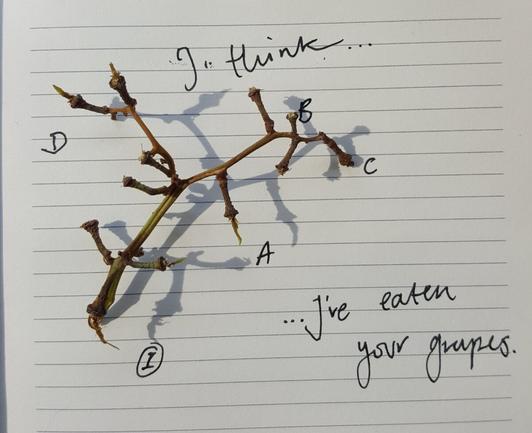 I think...
B
D
C
A
...I've eaten
your grapes.
①